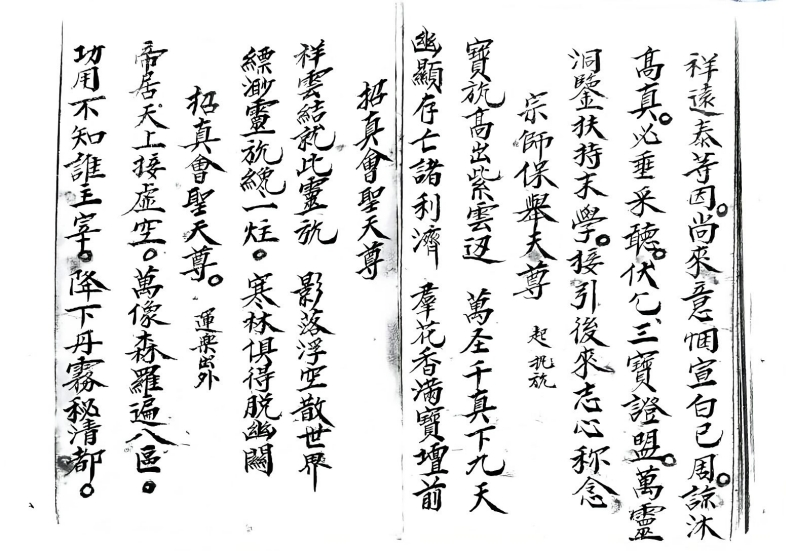 祥遠泰等因。尚來意悃宣白已周。諒沐
高真。必垂采聽。伏乞三寶證盟。萬靈
洞鑒扶持末學。接引後來志心称念
宗師保舉天尊 起祝旂
寶旂高出紫雲边 萬圣千真下九天
幽顯存亡諸利濟 羣花香滿寶壇前
招真會聖天尊
祥雲結就此靈旂 影落浮空散世界
縹渺靈旂纔一炷。寒林俱得脱幽關
招真會聖天尊。 運樂出外
帝居天上接虛空。萬像森羅遍八區。
功用不知誰主宰。降下丹霧秘清都。